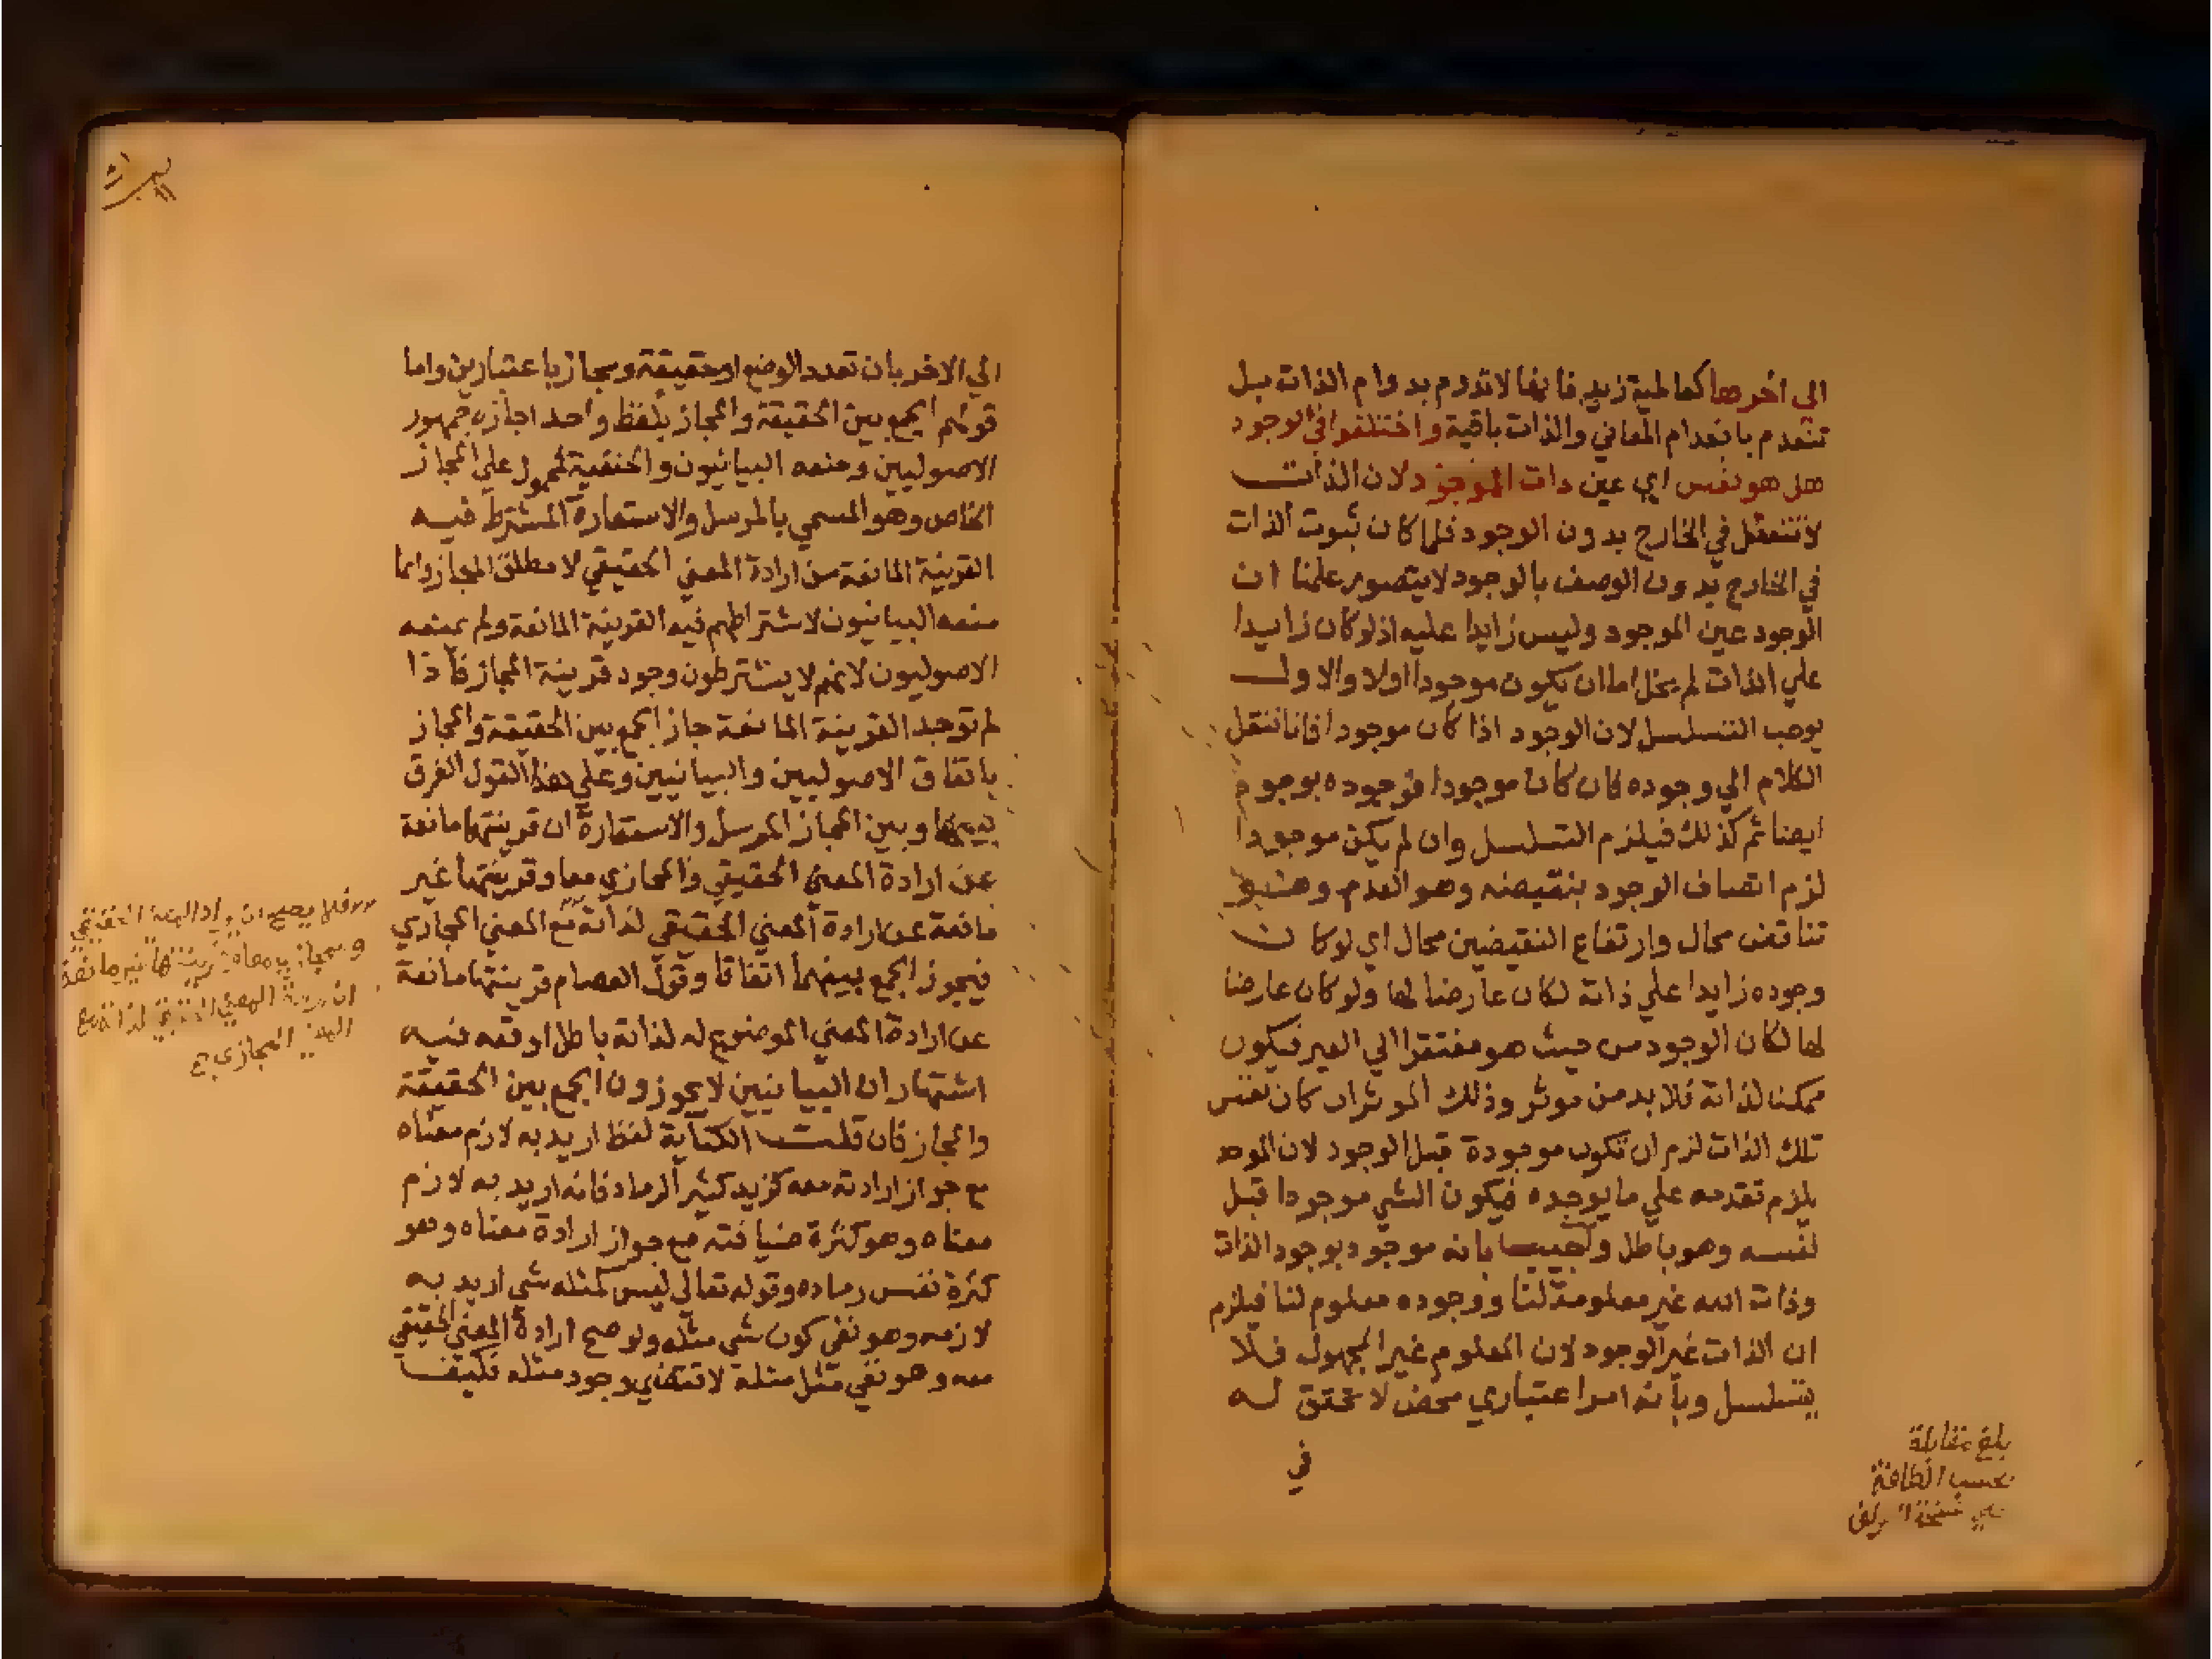 الى اخرها كعالمية زيد فانها لا تدوم بدوام الذات بل
تنعدم بانعدام المعاني والذات باقية واختلفوا في الوجود
هل هو نفس اي عين ذات الموجود لان الذات
لا تتعقل في الخارج بدون الوجود فلما كان ثبوت الذات
في الخارج بدون الوصف بالوجود لا يتصور علمنا ان
الوجود عين الموجود وليس زايدا عليه اذ لو كان زايدا
علي الذات لم يخل اما ان يكون موجودا اولا والاول
يوجب التسلسل لان الوجود اذا كان موجودا فانا ننقل
الكلام الي وجوده فان كان موجودا فوجوده بوجود
ايضا ثم كذلك فيلزم التسلسل وان لم يكن موجودا
لزم اتصاف الوجود بنقيضه وهو العدم وهو
تناقض محال وارتفاع النقيضين محال اي لو كان
وجوده زايدا علي ذاته لكان عارضا لها ولو كان عارضا
لها لكان الوجود من حيث هو مفتقرا الي الغير فيكون
ممكنا لذاته فلا بد من موثر وذلك الموثر ان كان نفس
تلك الذات لزم ان تكون موجودة قبل الوجود لان الموجد
يلزم تقدمه علي ما يوجده فيكون الشي موجودا قبل
نفسه وهو باطل واجيب بانه موجود بوجود الذات
وذات الله غير معلومة لنا ووجوده معلوم لنا فيلزم
ان الذات غير الوجود لان المعلوم غير المجهول فلا
يتسلسل وبانه امرا عتباري محض لا تحقق له
في
بلغ مقابلة
بحسب الطاقة
علي نسخة المولف
الي الاخر بان تعدد الوضع او حقيقة ومجاز باعتبارين واما
قولهم الجمع بين الحقيقة والمجاز بلفظ واحد اجازه جمهور
الاصوليين ومنعه البيانيون والحنفية محمول علي المجاز
الخاص وهو المسمي بالمرسل والاستعارة المشترط فيه
القرينة المانعة من ارادة المعني الحقيقي لا مطلق المجاز وانما
منعه البيانيون لاشتراطهم فيه القرينة المانعة ولم يمنعه
الاصوليون لانهم لا يشترطون وجود قرينة المجاز فاذا
لم توجد القرينة المانعة جاز الجمع بين الحقيقة والمجاز
باتفاق الاصوليين والبيانيين وعلي هذا القول الفرق
بينها وبين المجاز المرسل والاستعارة ان قرينتهما مانعة
عن ارادة المعني الحقيقي والمجازي معا وقرينتها غير
مانعة عن ارادة المعني الحقيقي لذاته مع المعني المجازي
فيجوز الجمع بينهما اتفاقا وقول العصام قرينتها مانعة
عن ارادة المعني الموضوع له لذاته باطل اوقعه فيه
اشتهار ان البيانيين لا يجوزون الجمع بين الحقيقة
والمجاز فان قلت الكناية لفظ اريد به لازم معناه
مع جواز ارادته معه كزيد كثير الرماد فانه اريد به لازم
معناه وهو كثرة ضيافته مع جواز ارادة معناه وهو
كثرة نفس رماده وقوله تعالي ليس كمثله شي اريد به
لازمه وهو نفي كون شي مثله ولو صح ارادة المعني الحقيقي
معه وهو نفي مثل مثله لاقتضي وجود مثله فكيف
فلا يصح ان يراد المعني الحقيقي
ومجازيه معا وقرينتها غير مانعة
المعني الحقيقي لذاته مع
المعني المجازي